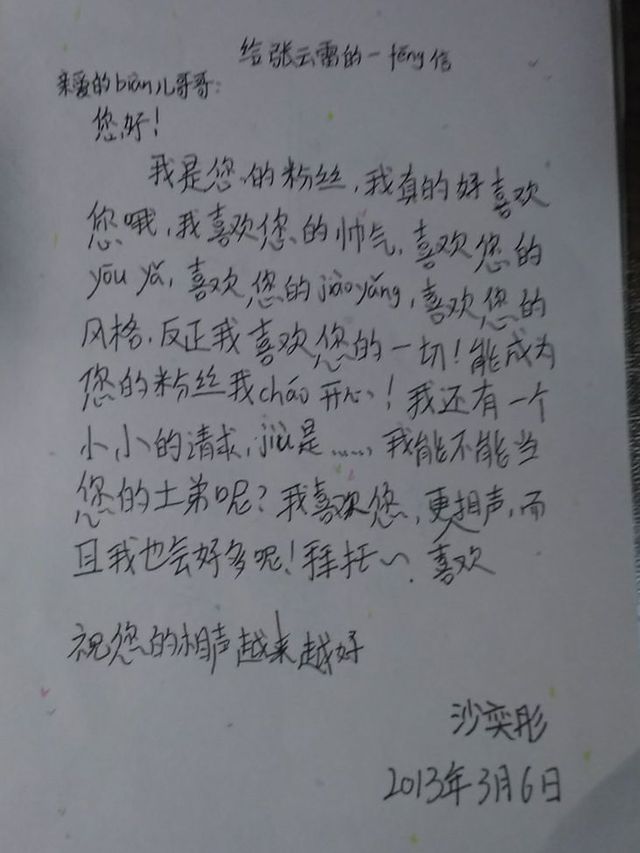 给张云雷的一fēng信
亲爱的biàn儿哥哥：
您好！
我是您的粉丝，我真的好喜欢
您哦，我喜欢您的帅气，喜欢您的
yōu yǎ，喜欢您的jiāo yǎng，喜欢您的
风格，反正我喜欢您的一切！能成为
您的粉丝我cháo开心！我还有一个
小小的请求，jiù是……，我能不能当
您的土弟呢？我喜欢您，更相声，而
且我也会好多呢！拜托~~。喜欢
祝您的相声越来越好
沙奕彤
2013年3月6日